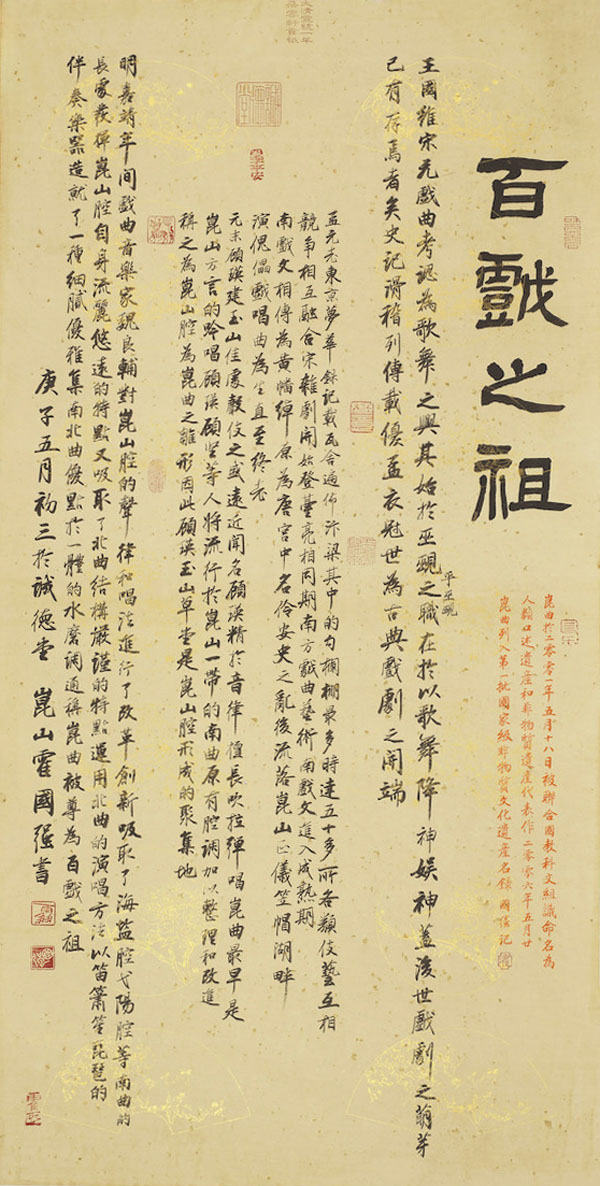 百戲之祖
崑曲於二零零一年五月十八日被聯合國教科文組識命名為
人類口述遺產和非物質遺產代表作二零零六年五月廿
崑曲列入第一批國家級非物質文化遺產名錄 國強記
王國維宋元戲曲考認為歌舞之興其始於巫覡之職在於以歌舞降神娛神蓋後世戲劇之萌芽
平巫覡
已有存焉者矣史記滑稽列傳載優孟衣冠世為古典戲劇之開端
孟元老東京夢華錄記載瓦舍遍佈汴梁其中的勾欄棚最多時達五十多所各類伎藝互相
競爭相互融合宋雜劇開始登臺亮相同期南方戲曲藝術南戲文進入成熟期
南戲文相傳為黃幡綽原為唐宮中名伶安史之亂後流落崑山正儀笠帽湖畔
演傀儡戲唱曲為生直至終老
元末顧瑛建玉山佳處聲伎之盛遠近聞名顧瑛精於音律值長吹拉彈唱崑曲最早是
崑山方言的吟唱顧瑛顧堅等人將流行於崑山一帶的南曲原有腔調加以整理和改進
稱之為崑山腔為崑曲之雛形因此顧瑛玉山草堂是崑山腔形成的聚集地
明嘉靖年間戲曲音樂家魏良輔對崑山腔的聲律和唱法進行了改革創新吸取了海盐腔弋陽腔等南曲的
長處發揮崑山腔自身流麗悠遠的特點又吸取了北曲結構嚴謹的特點運用北曲的演唱方法以笛簫笙琵琶的
伴奏樂器造就了一種細膩優雅集南北曲優點於一體的水磨調通稱崑曲被尊為百戲之祖
庚子五月初三於誠德堂 崑山霍國强書